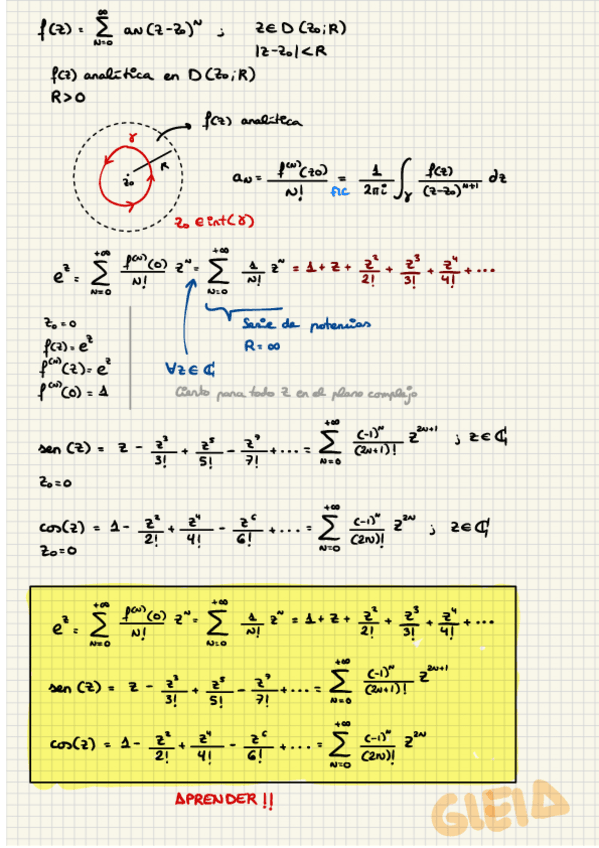 f(z) = ∑_{N=0}^{∞} a_N (z-z₀)^N ; z ∈ D(z₀;R)
|z-z₀| < R
f(z) analítica en D(z₀;R)
R>0
f(z) analítica
γ
R
z₀
a_N = f^{(N)}(z₀)/N! = 1/2πi ∫_γ f(z)/(z-z₀)^{N+1} dz
FIC
z₀ ∈ int(γ)
e^z = ∑_{N=0}^{+∞} f^{(N)}(0)/N! z^N = ∑_{N=0}^{+∞} 1/N! z^N = 1 + z + z²/2! + z³/3! + z⁴/4! + ...
z₀=0
f(z)=e^z
f^{(N)}(z)=e^z
f^{(N)}(0)=1
Serie de potencias
R=∞
∀z∈ℂ
Cierto para todo z en el plano complejo
sen(z) = z - z³/3! + z⁵/5! - z⁷/7! + ... = ∑_{N=0}^{+∞} (-1)^N/(2N+1)! z^{2N+1} ; z∈ℂ
z₀=0
cos(z) = 1 - z²/2! + z⁴/4! - z⁶/6! + ... = ∑_{N=0}^{+∞} (-1)^N/(2N)! z^{2N} ; z∈ℂ
z₀=0
e^z = ∑_{N=0}^{+∞} f^{(N)}(0)/N! z^N = ∑_{N=0}^{+∞} 1/N! z^N = 1 + z + z²/2! + z³/3! + z⁴/4! + ...
sen(z) = z - z³/3! + z⁵/5! - z⁷/7! + ... = ∑_{N=0}^{+∞} (-1)^N/(2N+1)! z^{2N+1}
cos(z) = 1 - z²/2! + z⁴/4! - z⁶/6! + ... = ∑_{N=0}^{+∞} (-1)^N/(2N)! z^{2N}
APRENDER!!
GIEIA